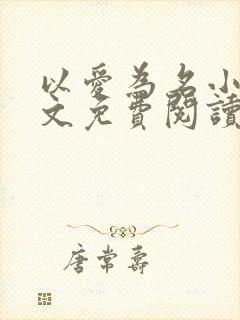 以愛為名小
文免費閱讀
唐常壽